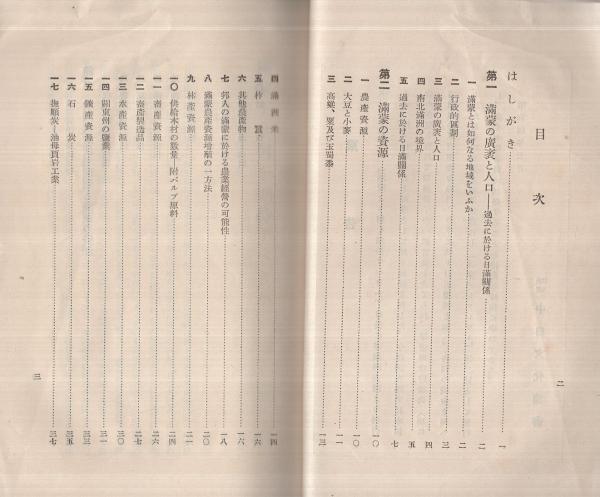 目次
はしがき 一
第一 滿蒙の廣袤と人口——過去に於ける日滿關係 二
一 滿蒙とは如何なる地域をいふか 二
二 行政的區劃 二
三 滿蒙の廣袤と人口 三
四 南北滿洲の境界 四
五 過去に於ける日滿關係 五
第二 滿蒙の資源 七
一 農產資源 一〇
二 大豆と小麥 一〇
三 高粱、粟及び玉蜀黍 一一
一三
二
四 滿洲米 一四
五 柞蠶 一六
六 其他農產物 一六
七 邦人の滿蒙に於ける農業經營の可能性 一八
八 滿蒙農產資源增殖の一方法 二〇
九 林產資源 二一
一〇 供給木材の數量—附パルプ原料 二四
一一 畜產資源 二六
一二 畜產製造品 二七
一三 水產資源 三〇
一四 關東州の鹽業 三一
一五 鑛產資源 三三
一六 石炭 三五
一七 撫順炭—油母頁岩工業 三七
三